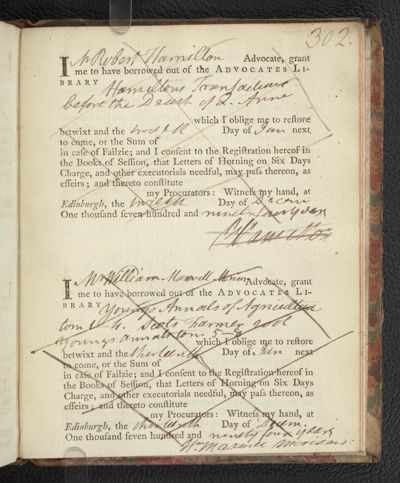 302.
I Mr Robert Hamilton Advocate, grant
me to have borrowed out of the ADVOCATES LI-
BRARY Hamiltons Transactions
before the Death of Q. Anne
which I oblige me to restore
betwixt and the Day of Jan next
to come, or the Sum of
in case of Failzie; and I consent to the Registration hereof in
the Books of Session, that Letters of Horning on Six Days
Charge, and other executorials needful, may pass thereon, as
effeirs; and thereto constitute
my Procurators: Witness my hand, at
Edinburgh, the twelfth Day of Decem
One thousand seven hundred and ninety four years
R Hamilton
I Mr William Maxwell Morison Advocate, grant
me to have borrowed out of the ADVOCATES LI-
BRARY Youngs Annals of Agriculture
tom 1 4. Scots Farmer
Youngs annals tom. 5-8
which I oblige me to restore
betwixt and the thirteenth Day of Jan next
to come, or the Sum of
in case of Failzie; and I consent to the Registration hereof in
the Books of Session, that Letters of Horning on Six Days
Charge, and other executorials needful, may pass thereon, as
effeirs; and thereto constitute
my Procurators: Witness my hand, at
Edinburgh, the thirteenth Day of Decem.
One thousand seven hundred and ninety four years
Wm Maxwell Morison